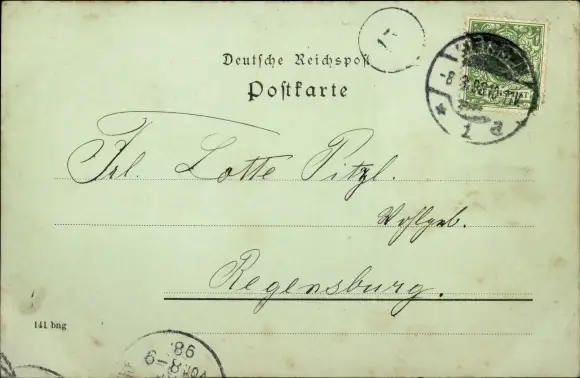 Deutsche Reichspost
Postkarte
Frl. Lotte Pitzl.
Wohlgeb.
Regensburg.
141 bng